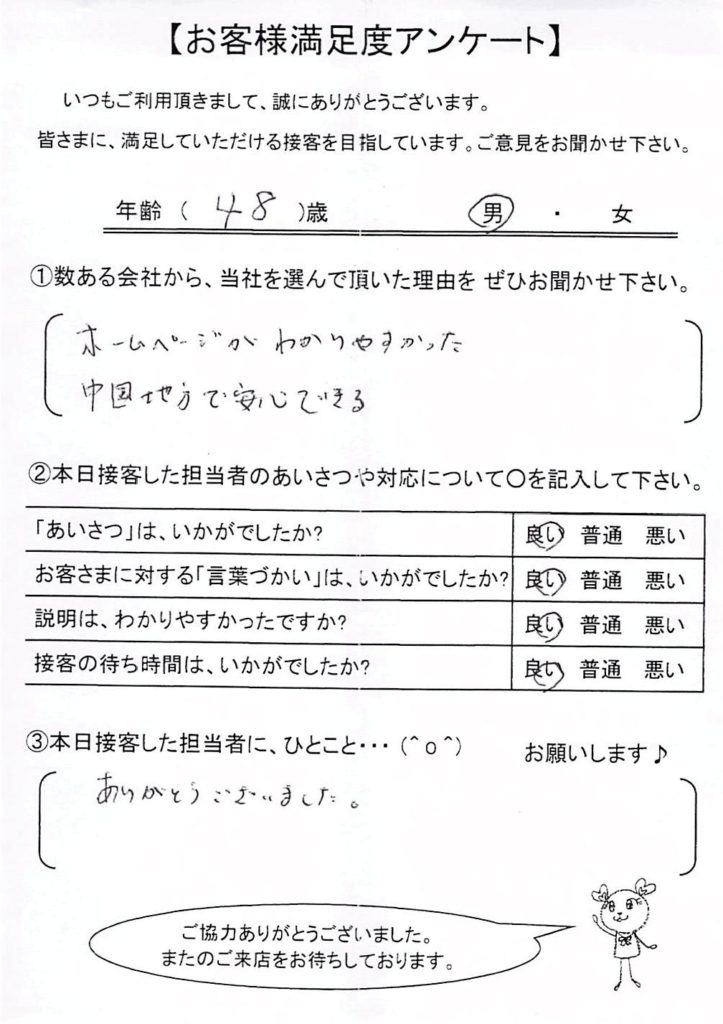 【お客様満足度アンケート】
いつもご利用頂きまして、誠にありがとうございます。
皆さまに、満足していただける接客を目指しています。ご意見をお聞かせ下さい。
年齢 ( 48 )歳 男 ・ 女
①数ある会社から、当社を選んで頂いた理由を ぜひお聞かせ下さい。
ホームページが わかりやすかった
中国地方で安心できる
②本日接客した担当者のあいさつや対応について〇を記入して下さい。
「あいさつ」は、いかがでしたか? 良い 普通 悪い
お客さまに対する「言葉づかい」は、いかがでしたか? 良い 普通 悪い
説明は、わかりやすかったですか? 良い 普通 悪い
接客の待ち時間は、いかがでしたか? 良い 普通 悪い
③本日接客した担当者に、ひとこと・・・ (^o^) お願いします♪
ありがとうございました。
ご協力ありがとうございました。
またのご来店をお待ちしております。